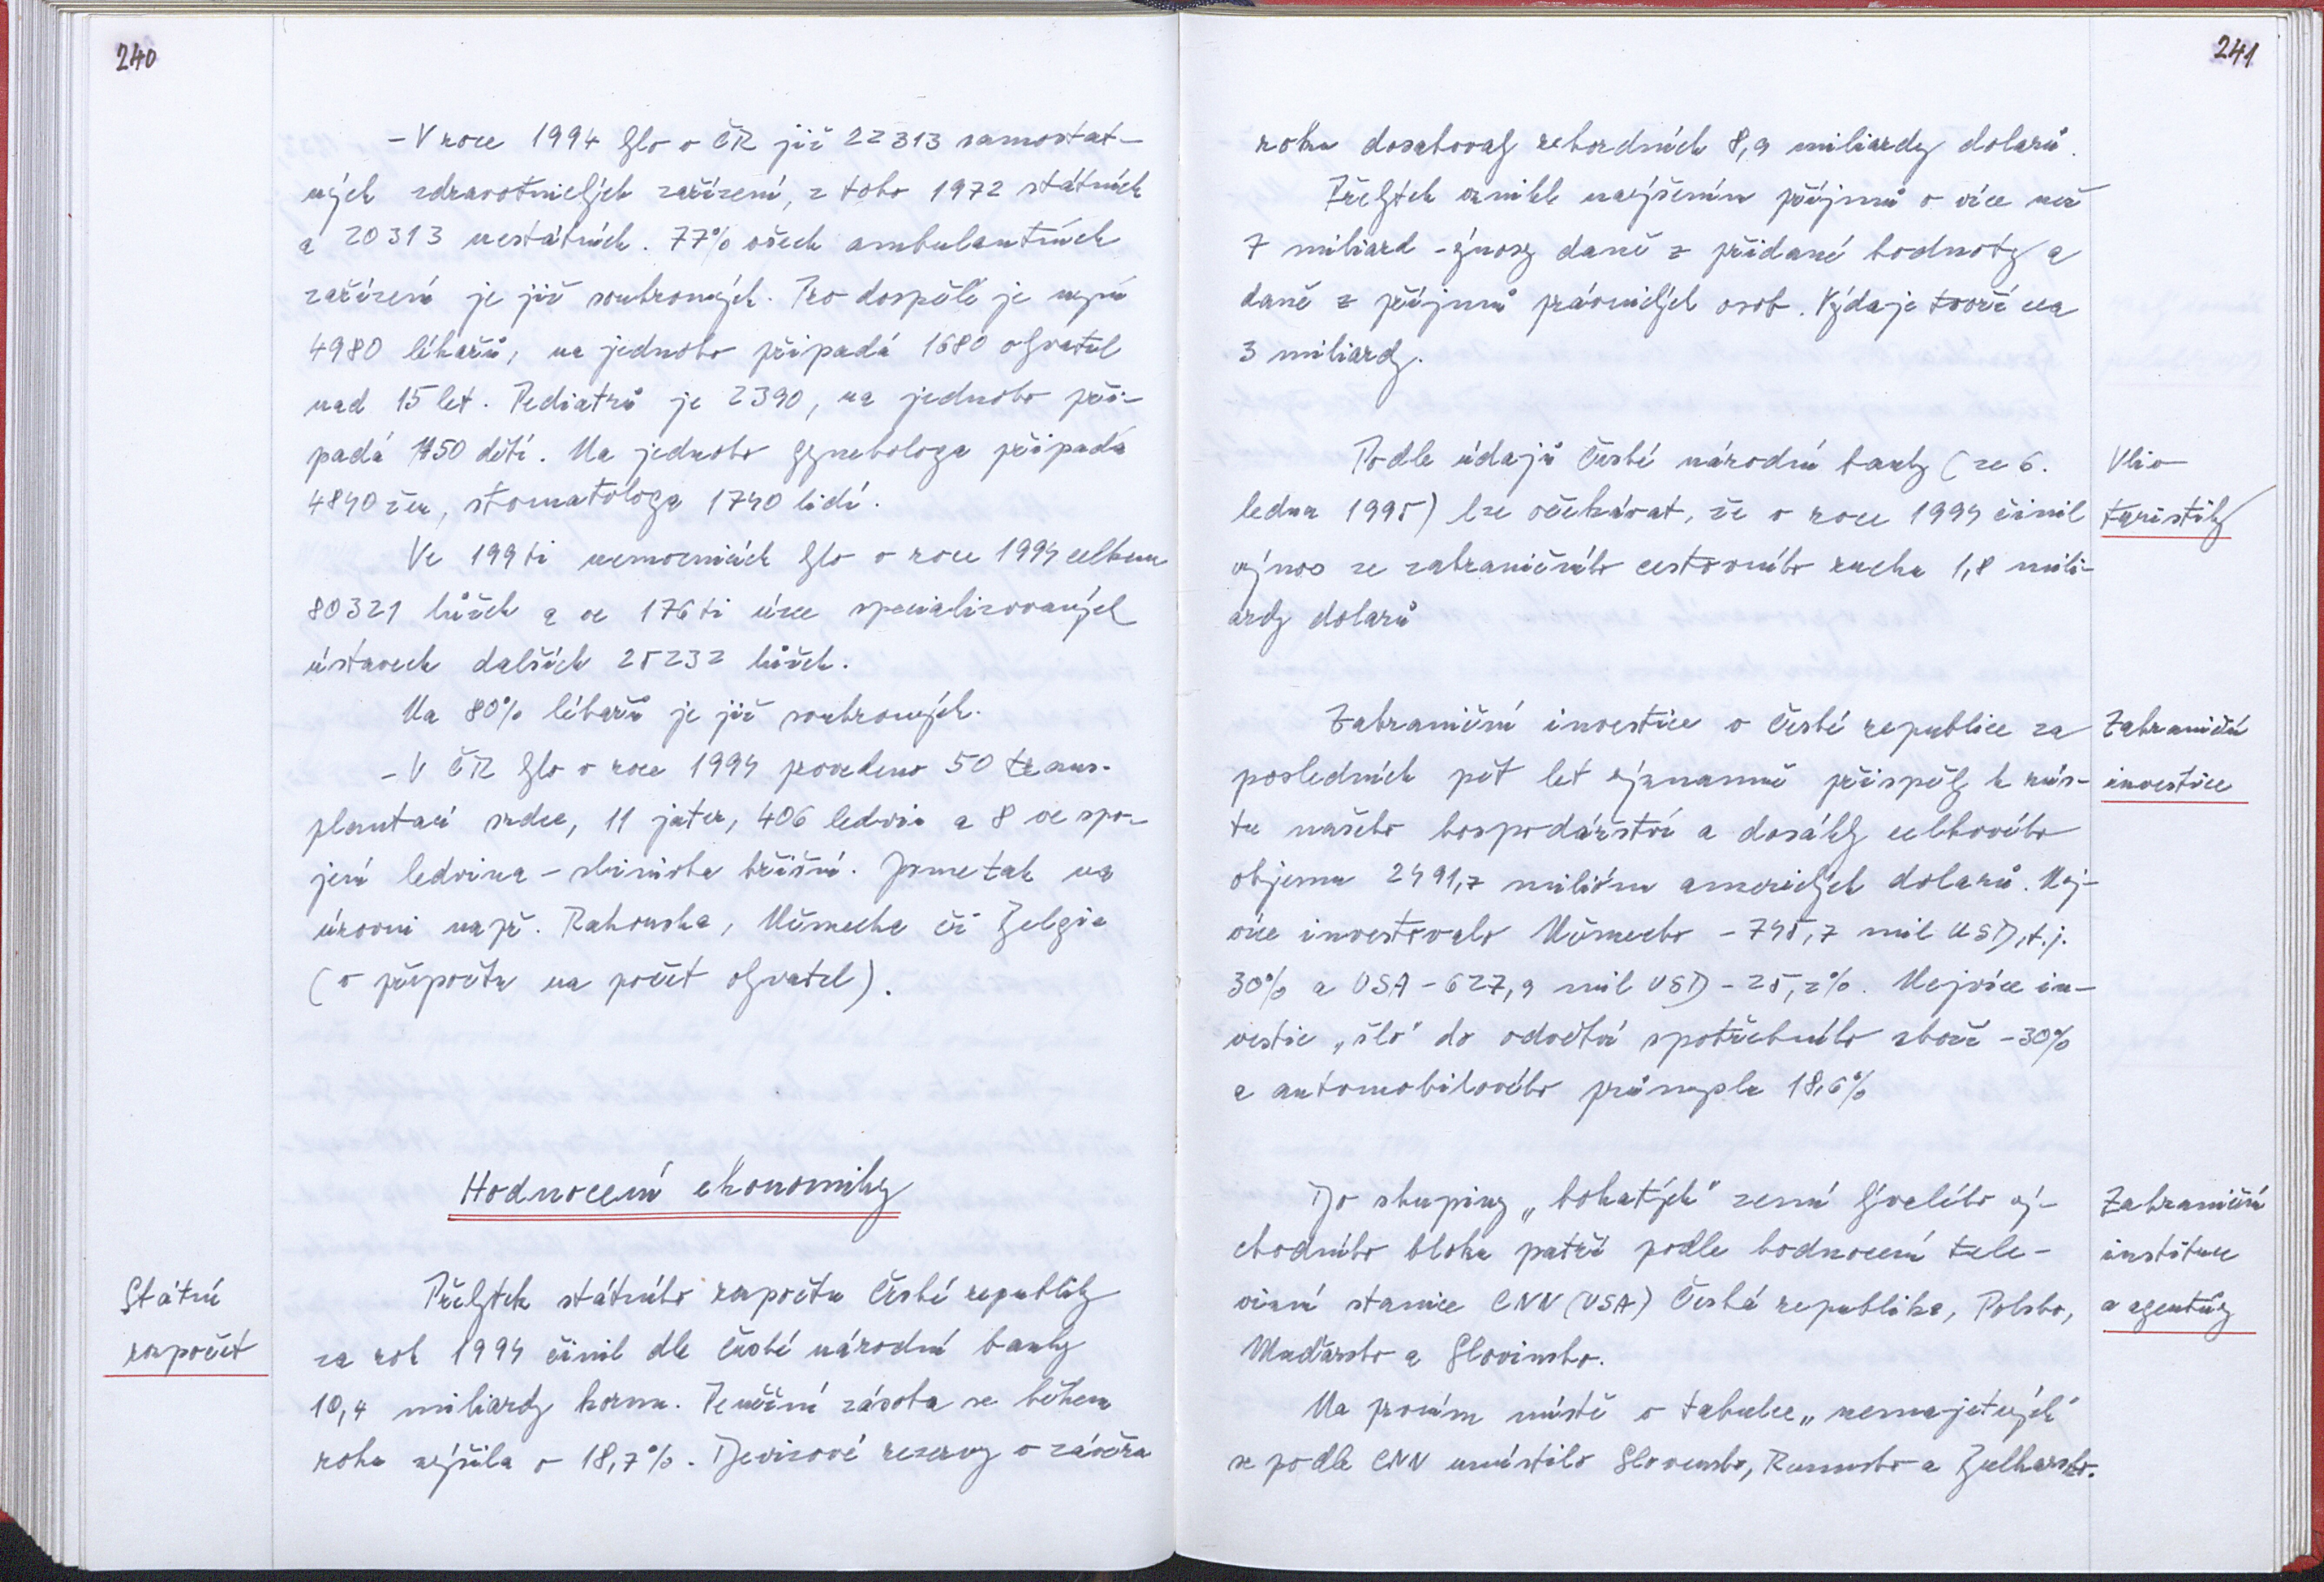 240
- V roce 1994 bylo v ČR již 22313 samostat-
ných zdravotnických zařízení, z toho 1972 státních
a 20313 nestátních. 77% všech ambulantních
zařízení je již soukromých. Pro dospělé je nyní
4980 lékařů, na jednoho připadá 1680 obyvatel
nad 15 let. Pediatrů je 2390, na jednoho při-
padá 950 dětí. Na jednoho gynekologa připadá
4840 žen, stomatologa 1740 lidí.
Ve 199ti nemocnicích bylo v roce 1994 celkem
80321 lůžek a ve 176ti úzce specializovaných
ústavech dalších 25232 lůžek.
Na 80% lékařů je již soukromých.
- V ČR bylo v roce 1994 provedeno 50 trans-
plantací srdce, 11 jater, 406 ledvin a 8 ve spo-
jení ledvina - slinivka břišní. Jsme tak na
úrovni např. Rakouska, Německa či Belgie
(v přepočtu na počet obyvatel).
Hodnocení ekonomiky
Státní
rozpočet
Přebytek státního rozpočtu České republiky
za rok 1994 činil dle České národní banky
10,4 miliardy korun. Peněžní zásoba se během
roku zvýšila o 18,7%. Devizové rezervy v závěru
241
roku dosahovaly rekordních 8,9 miliardy dolarů.
Přebytek vznikl navýšením příjmů o více než
7 miliard - výnosy daně z přidané hodnoty a
daně z příjmů právnických osob. Výdaje tvoří cca
3 miliardy.
Podle údajů České národní banky (ze 6.
ledna 1995) lze očekávat, že v roce 1994 činil
výnos ze zahraničního cestovního ruchu 1,8 mili-
ardy dolarů
Vliv
turistiky
Zahraniční investice v České republice za
posledních pět let významně přispěly k růs-
tu našeho hospodářství a dosáhly celkového
objemu 2491,7 miliónu amerických dolarů. Nej-
více investovalo Německo - 745,7 mil USD, t.j.
30% a USA - 627,9 mil USD - 25,2%. Nejvíce in-
vestic „šlo" do odvětví spotřebního zboží - 30%
a automobilového průmyslu 18,6%
Zahraniční
investice
Do skupiny „bohatých" zemí bývalého vý-
chodního bloku patří podle hodnocení tele-
vizní stanice CNN (USA) Česká republika, Polsko,
Maďarsko a Slovinsko.
Na prvním místě v tabulce „nemajetných"
se podle CNN umístilo Slovensko, Rumunsko a Bulharsko.
Zahraniční
instituce
a agentury